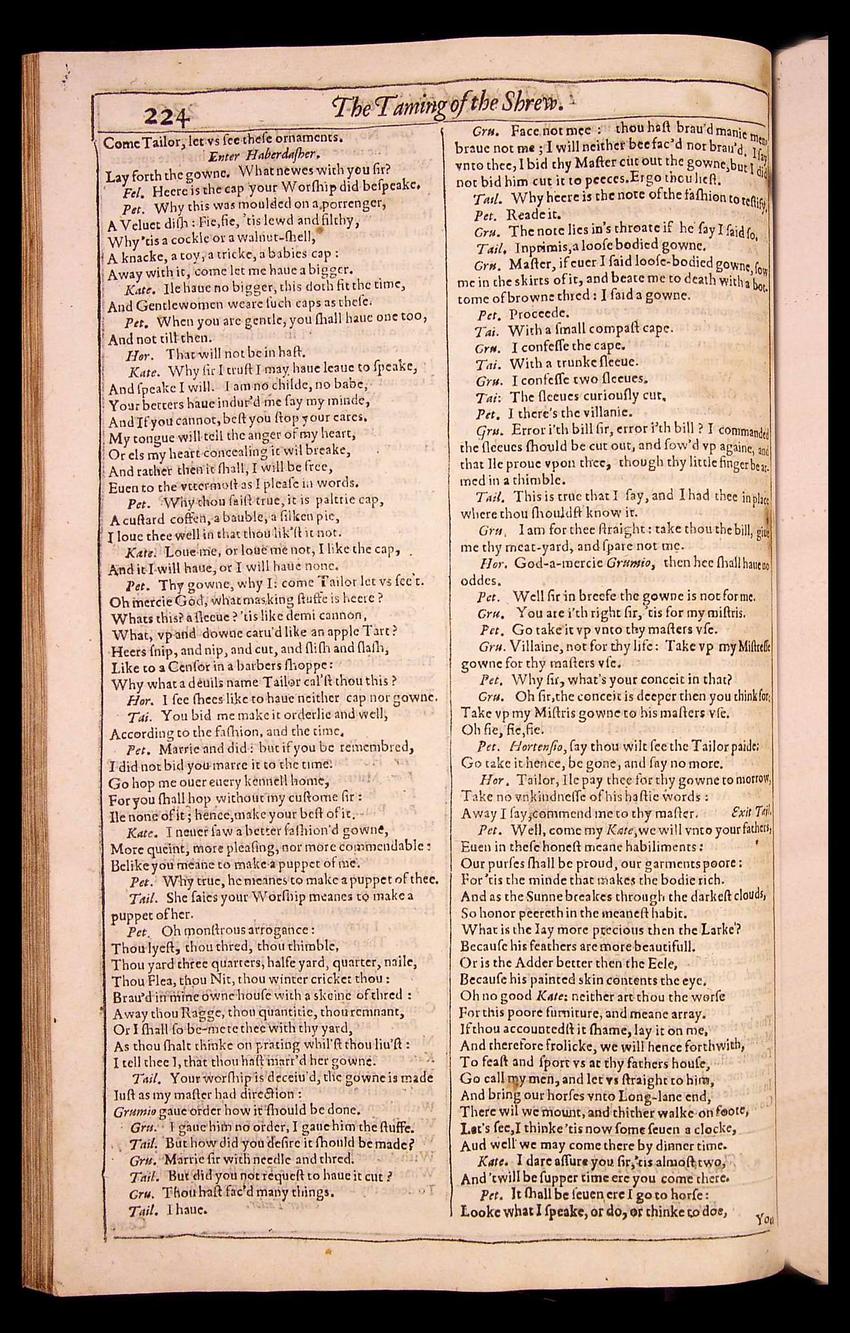 224
The Taming of the Shrew.
Come Tailor, let vs see these ornaments.
Enter Haberdasher.
Lay forth the gowne. What newes with you sir?
Fel. Heere is the cap your Worship did bespeake.
Pet. Why this was moulded on a porrenger,
A Veluet dish: Fie, fie, 'tis lewd and filthy,
Why 'tis a cockle or a walnut-shell,
A knacke, a toy, a tricke, a babies cap:
Away with it, come let me haue a bigger.
Kate. Ile haue no bigger, this doth fit the time,
And Gentlewomen weare such caps as these.
Pet. When you are gentle, you shall haue one too,
And not till then.
Hor. That will not be in hast.
Kate. Why sir I trust I may haue leaue to speake,
And speake I will. I am no childe, no babe,
Your betters haue indur'd me say my minde,
And If you cannot, best you stop your eares.
My tongue will tell the anger of my heart,
Or els my heart concealing it wil breake,
And rather then it shall, I will be free,
Euen to the vttermost as I please in words.
Pet. Why thou saist true, it is paltrie cap,
A custard coffen, a bauble, a silken pie,
I loue thee well in that thou lik'st it not.
Kate. Loue me, or loue me not, I like the cap,
And it I will haue, or I will haue none.
Pet. Thy gowne, why I: come Tailor let vs see't.
Oh mercie God, what masking stuffe is heere?
Whats this? a sleeue? 'tis like demi cannon,
What, vp and downe caru'd like an apple Tart?
Heers snip, and nip, and cut, and slish and slash,
Like to a Censor in a barbers shoppe:
Why what a deuils name Tailor cal'st thou this?
Hor. I see shees like to haue neither cap nor gowne.
Tai. You bid me make it orderlie and well,
According to the fashion, and the time.
Pet. Marrie and did: but if you be remembred,
I did not bid you marre it to the time.
Go hop me ouer euery kennell home,
For you shall hop without my custome sir:
Ile none of it; hence, make your best of it.
Kate. I neuer saw a better fashion'd gowne,
More queint, more pleasing, nor more commendable:
Belike you meane to make a puppet of me.
Pet. Why true, he meanes to make a puppet of thee.
Tail. She saies your Worship meanes to make a
puppet of her.
Pet. Oh monstrous arrogance:
Thou lyest, thou thred, thou thimble,
Thou yard three quarters, halfe yard, quarter, naile,
Thou Flea, thou Nit, thou winter cricket thou:
Brau'd in mine owne house with a skeine of thred:
Away thou Ragge, thou quantitie, thou remnant,
Or I shall so be-mete thee with thy yard,
As thou shalt thinke on prating whil'st thou liu'st:
I tell thee I, that thou hast marr'd her gowne.
Tail. Your worship is deceiu'd, the gowne is made
Iust as my master had direction:
Grumio gaue order how it should be done.
Gru. I gaue him no order, I gaue him the stuffe.
Tail. But how did you desire it should be made?
Gru. Marrie sir with needle and thred.
Tail. But did you not request to haue it cut?
Gru. Thou hast fac'd many things.
Tail. I haue.
Gru. Face not mee: thou hast brau'd manie men,
braue not me; I will neither bee fac'd nor brau'd. I say
vnto thee, I bid thy Master cut out the gowne, but I did
not bid him cut it to peeces. Ergo thou liest.
Tail. Why heere is the note of the fashion to testify,
Pet. Reade it.
Gru. The note lies in's throate if he say I said so.
Tail. Inprimis, a loose bodied gowne.
Gru. Master, if euer I said loose-bodied gowne, sow
me in the skirts of it, and beate me to death with a bot-
tome of browne thred: I said a gowne.
Pet. Proceede.
Tai. With a small compast cape.
Gru. I confesse the cape.
Tai. With a trunke sleeue.
Gru. I confesse two sleeues.
Tai: The sleeues curiously cut.
Pet. I there's the villanie.
Gru. Error i'th bill sir, error i'th bill? I commanded
the sleeues should be cut out, and sow'd vp againe, and
that Ile proue vpon thee, though thy little finger be ar-
med in a thimble.
Tail. This is true that I say, and I had thee in place
where thou shouldst know it.
Gru. I am for thee straight: take thou the bill, giue
me thy meat-yard, and spare not me.
Hor. God-a-mercie Grumio, then hee shall haue no
oddes.
Pet. Well sir in breefe the gowne is not for me.
Gru. You are i'th right sir, 'tis for my mistris.
Pet. Go take it vp vnto thy masters vse.
Gru. Villaine, not for thy life: Take vp my Mistresse
gowne for thy masters vse.
Pet. Why sir, what's your conceit in that?
Gru. Oh sir, the conceit is deeper then you think for:
Take vp my Mistris gowne to his masters vse.
Oh fie, fie, fie.
Pet. Hortensio, say thou wilt see the Tailor paide:
Go take it hence, be gone, and say no more.
Hor. Tailor, Ile pay thee for thy gowne to morrow,
Take no vnkindnesse of his hastie words:
Away I say, commend me to thy master. Exit Tail.
Pet. Well, come my Kate, we will vnto your fathers,
Euen in these honest meane habiliments:
Our purses shall be proud, our garments poore:
For 'tis the minde that makes the bodie rich.
And as the Sunne breakes through the darkest clouds,
So honor peereth in the meanest habit.
What is the Iay more precious then the Larke?
Because his feathers are more beautifull.
Or is the Adder better then the Eele,
Because his painted skin contents the eye.
Oh no good Kate: neither art thou the worse
For this poore furniture, and meane array.
If thou accountedst it shame, lay it on me,
And therefore frolicke, we will hence forthwith,
To feast and sport vs at thy fathers house,
Go call my men, and let vs straight to him,
And bring our horses vnto Long-lane end,
There wil we mount, and thither walke on foote,
Let's see, I thinke 'tis now some seuen a clocke,
Aud well we may come there by dinner time.
Kate. I dare assure you sir, 'tis almost two,
And 'twill be supper time ere you come there.
Pet. It shall be seuen ere I go to horse:
Looke what I speake, or do, or thinke to doe,
You